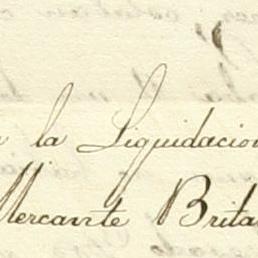 la Liquidacion
Mercante Brita